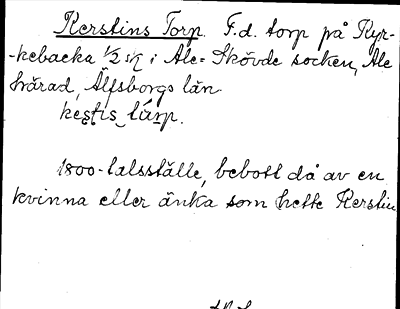 Kerstins Torp. F.d. torp på Kyr-
-kebacka 1/2 sk i Ale-Skövde socken, Ale
härad, Älfsborgs län
kestis tårp.
1800-talsställe, bebott då av en
kvinna eller änka som hette Kerstin